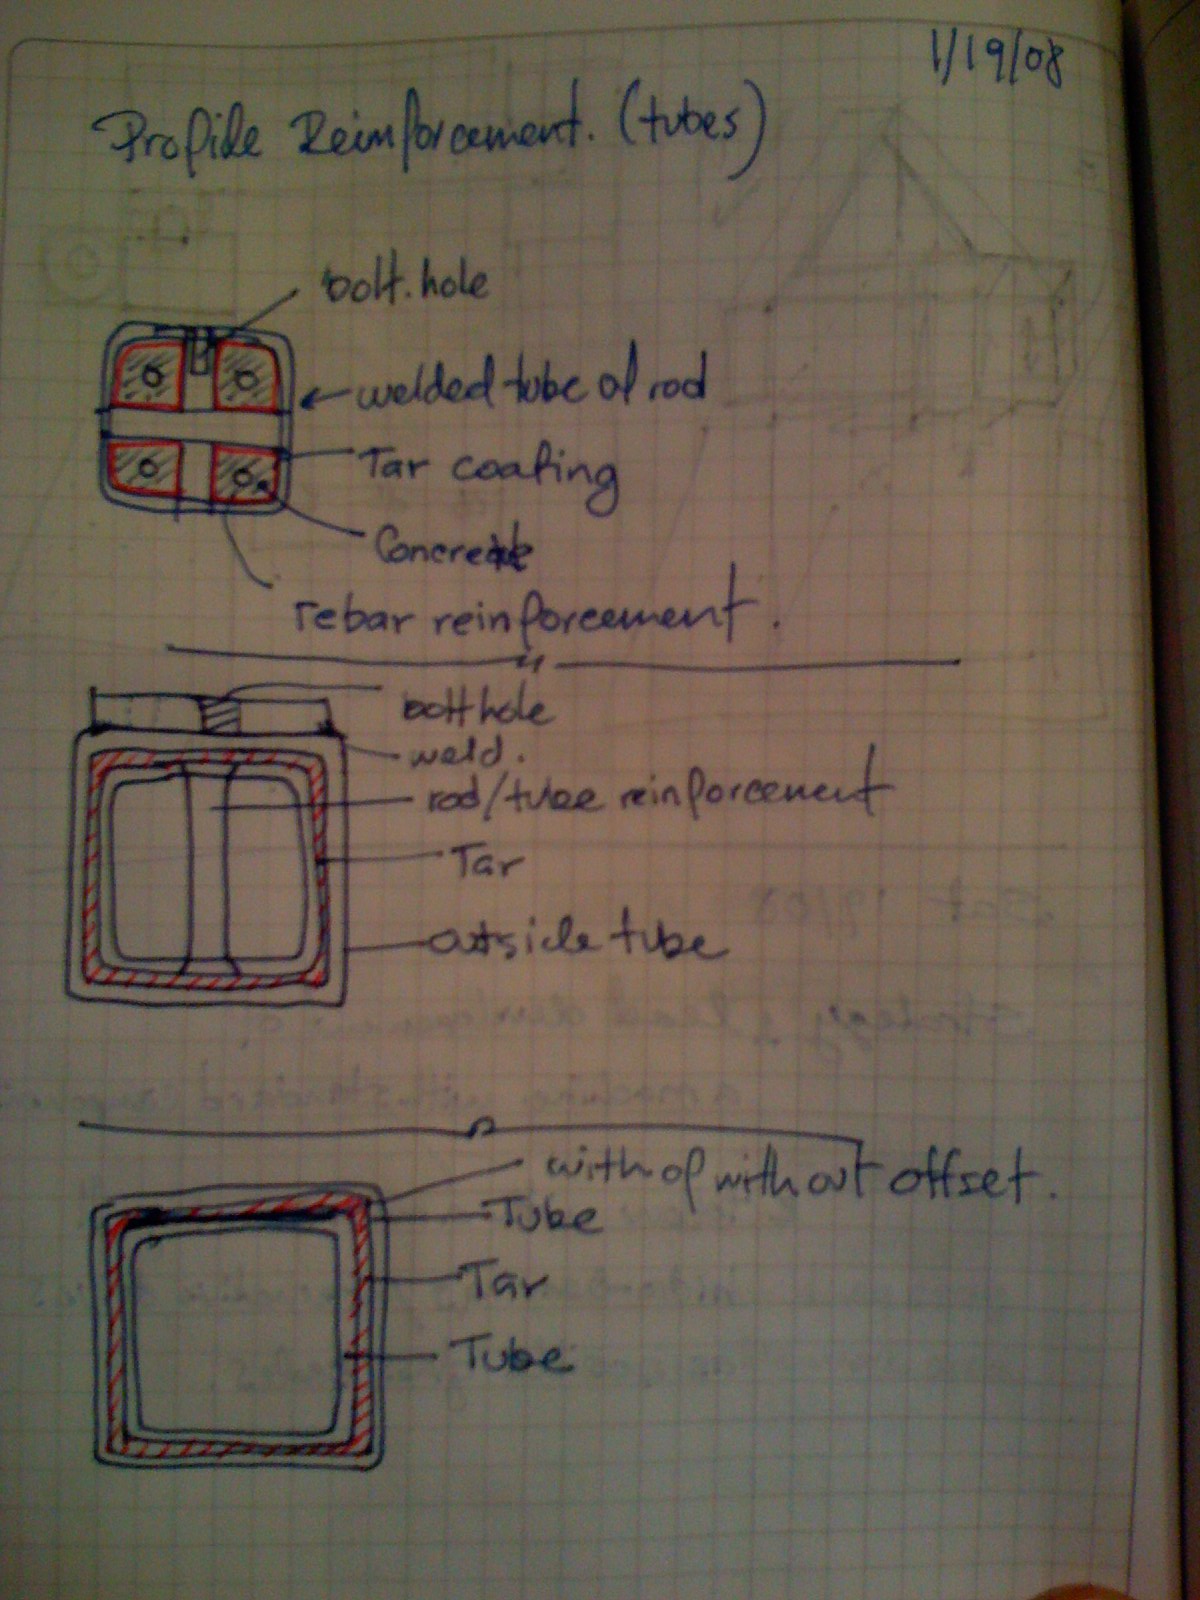 1/19/08
Profile Reinforcement. (tubes)
bolt.hole
welded tube of rod
Tar coating
Concrete
rebar reinforcement.
bolt hole
weld.
rod/tube reinforcement
Tar
outside tube
with of without offset.
Tube
Tar
Tube